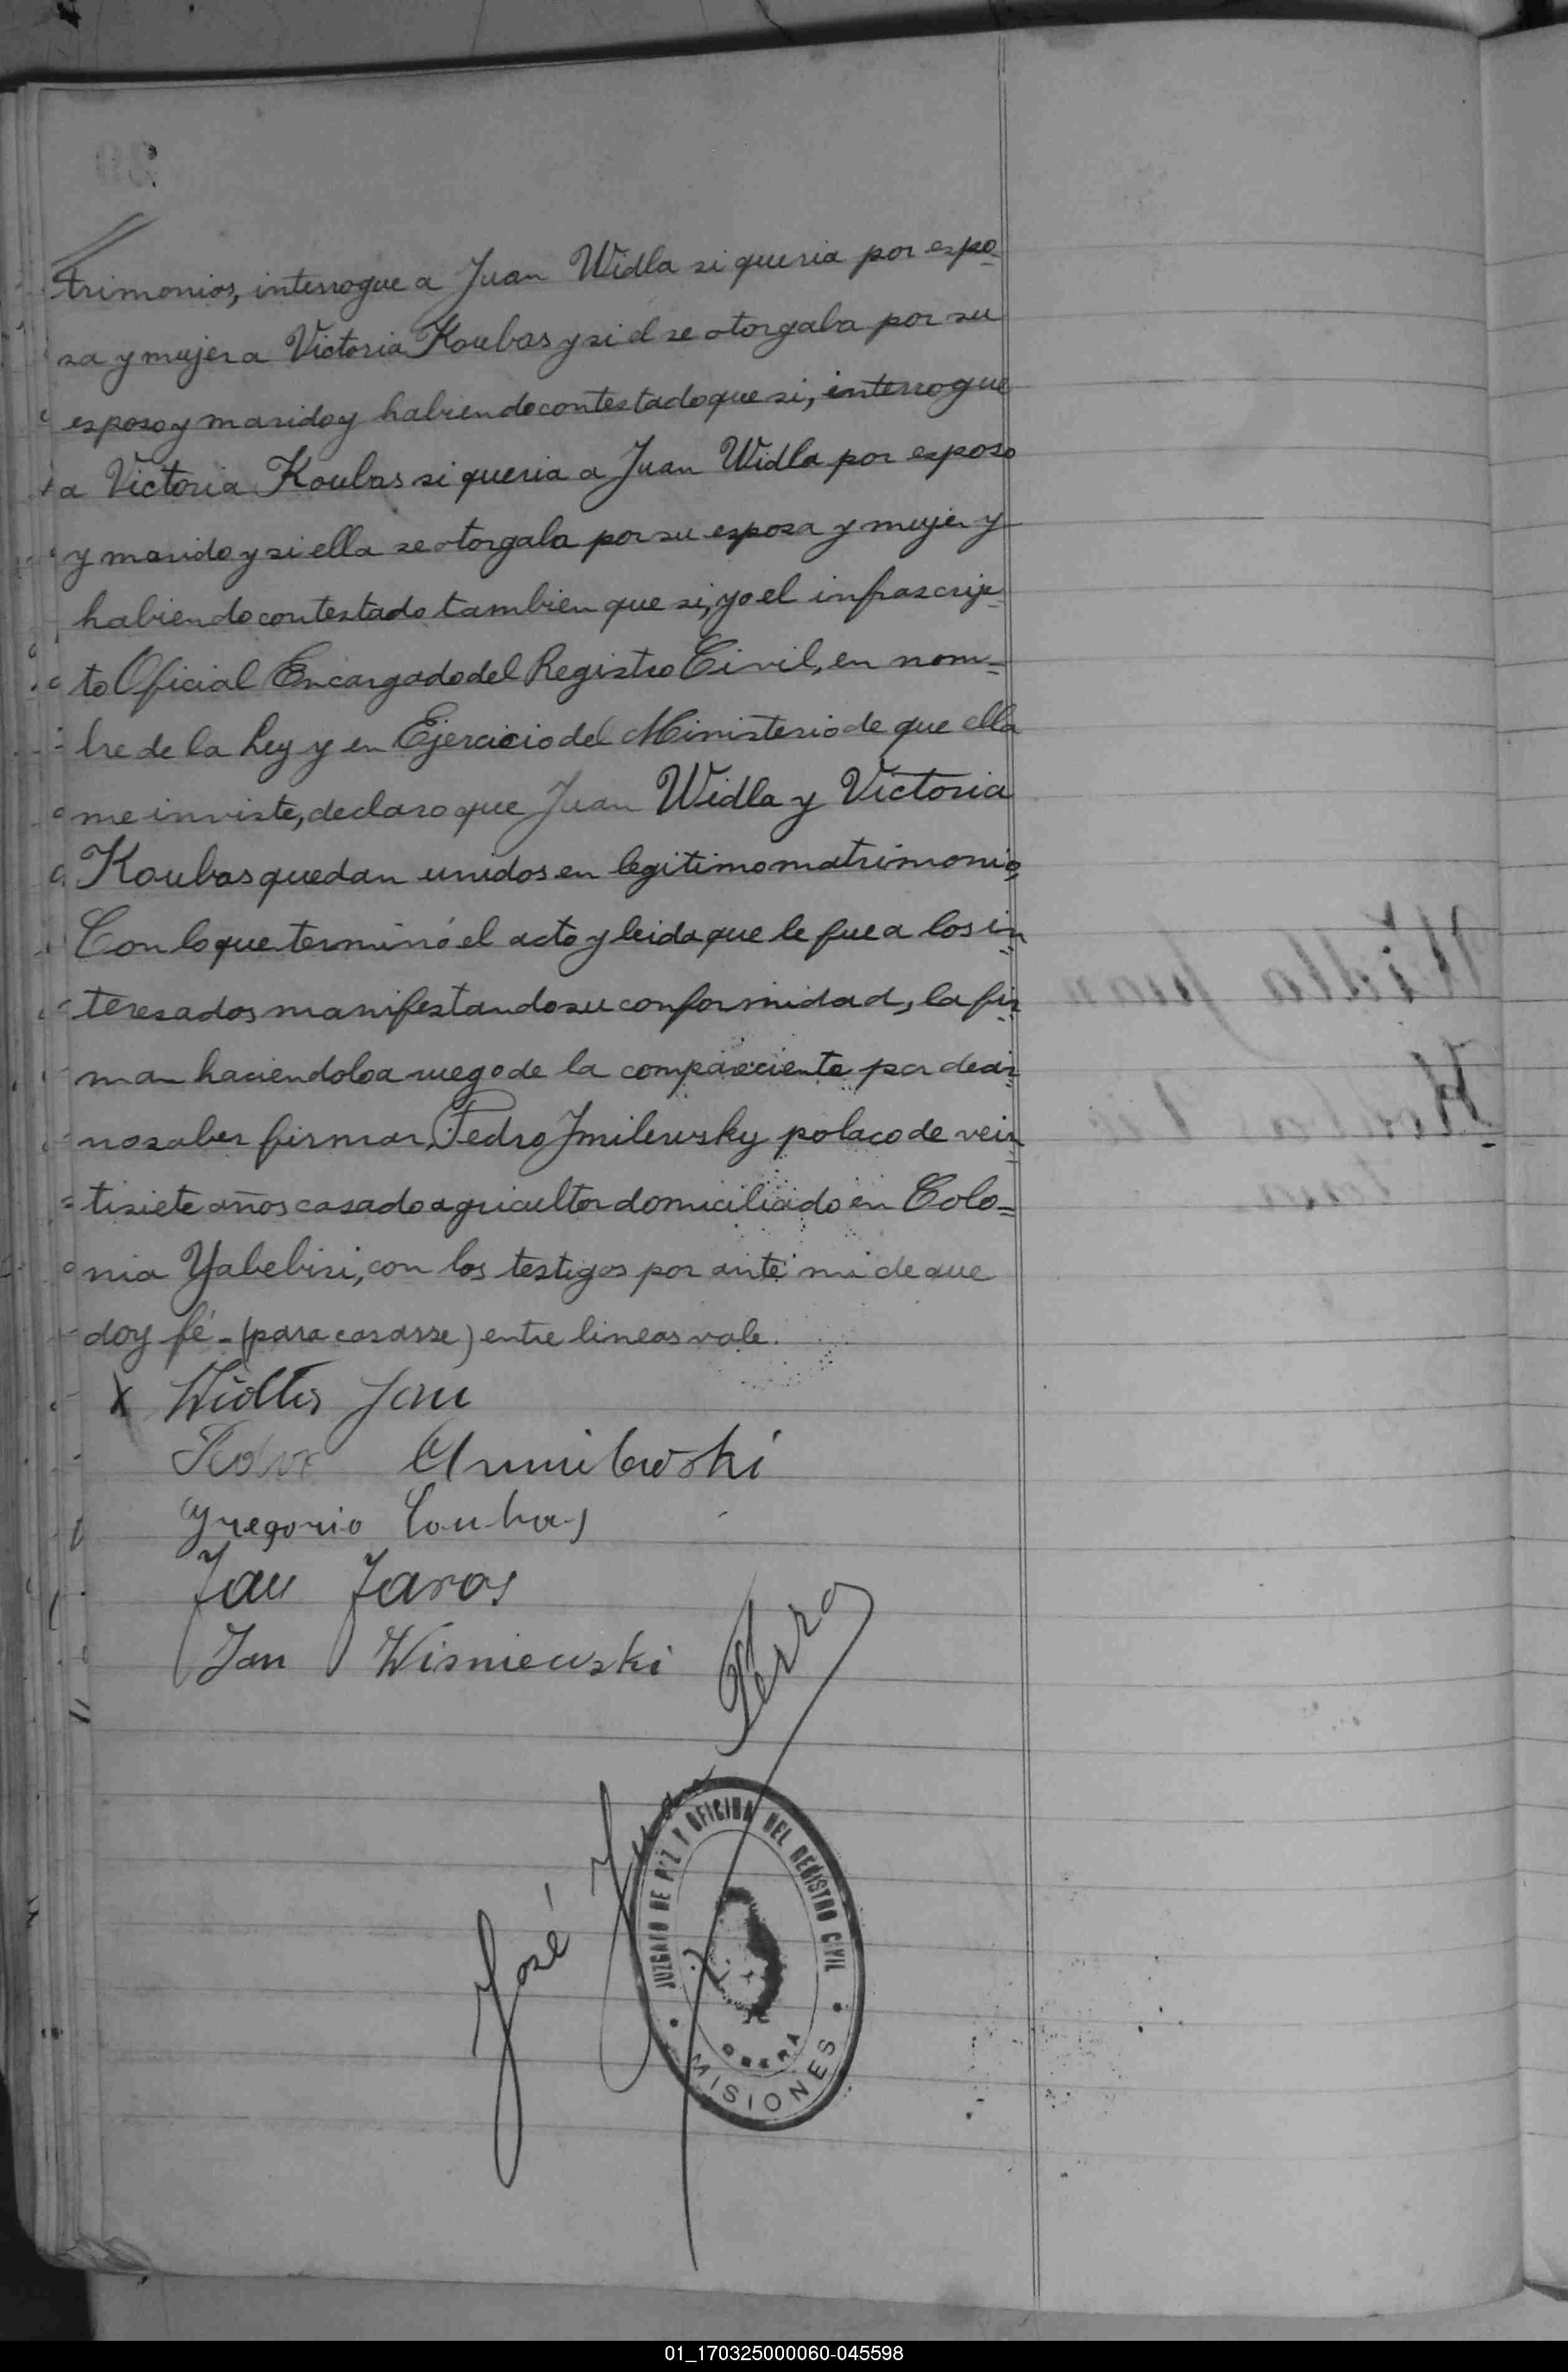 trimonios, interrogue a Juan Widla si queria por espo-
sa y mujer a Victoria Koubas y si el se otorgaba por su
esposo y marido y habiendo contestado que si, interrogue
a Victoria Koubas si queria a Juan Widla por esposo
y marido y si ella se otorgaba por su esposa y mujer y
habiendo contestado tambien que si, yo el infrascrip-
to Oficial Encargado del Registro Civil, en nom=
bre de la Ley y en Ejercicio del Ministerio de que ella
me inviste, declaro que Juan Widla y Victoria
Koubas quedan unidos en legitimo matrimonio,
Con lo que terminó el acto y leida que le fue a los in=
teresados manifestando su conformidad, la fir=
man haciendolo a ruego de la compareciente por decir
no saber firmar, Pedro Jmilewsky polaco de vein=
tisiete años casado agricultor domiciliado en Colo=
nia Yabebiri, con los testigos por ante mi de que
doy fé - (para casarse) entre lineas vale.
X Jan
Gregorio Coubas
Jan Jaros
Jan Wisniewski
José Juan
JUZGADO DE PAZ Y OFICINA DEL REGISTRO CIVIL
OBERA
MISIONES
Widla Juan
01_170325000060-045598